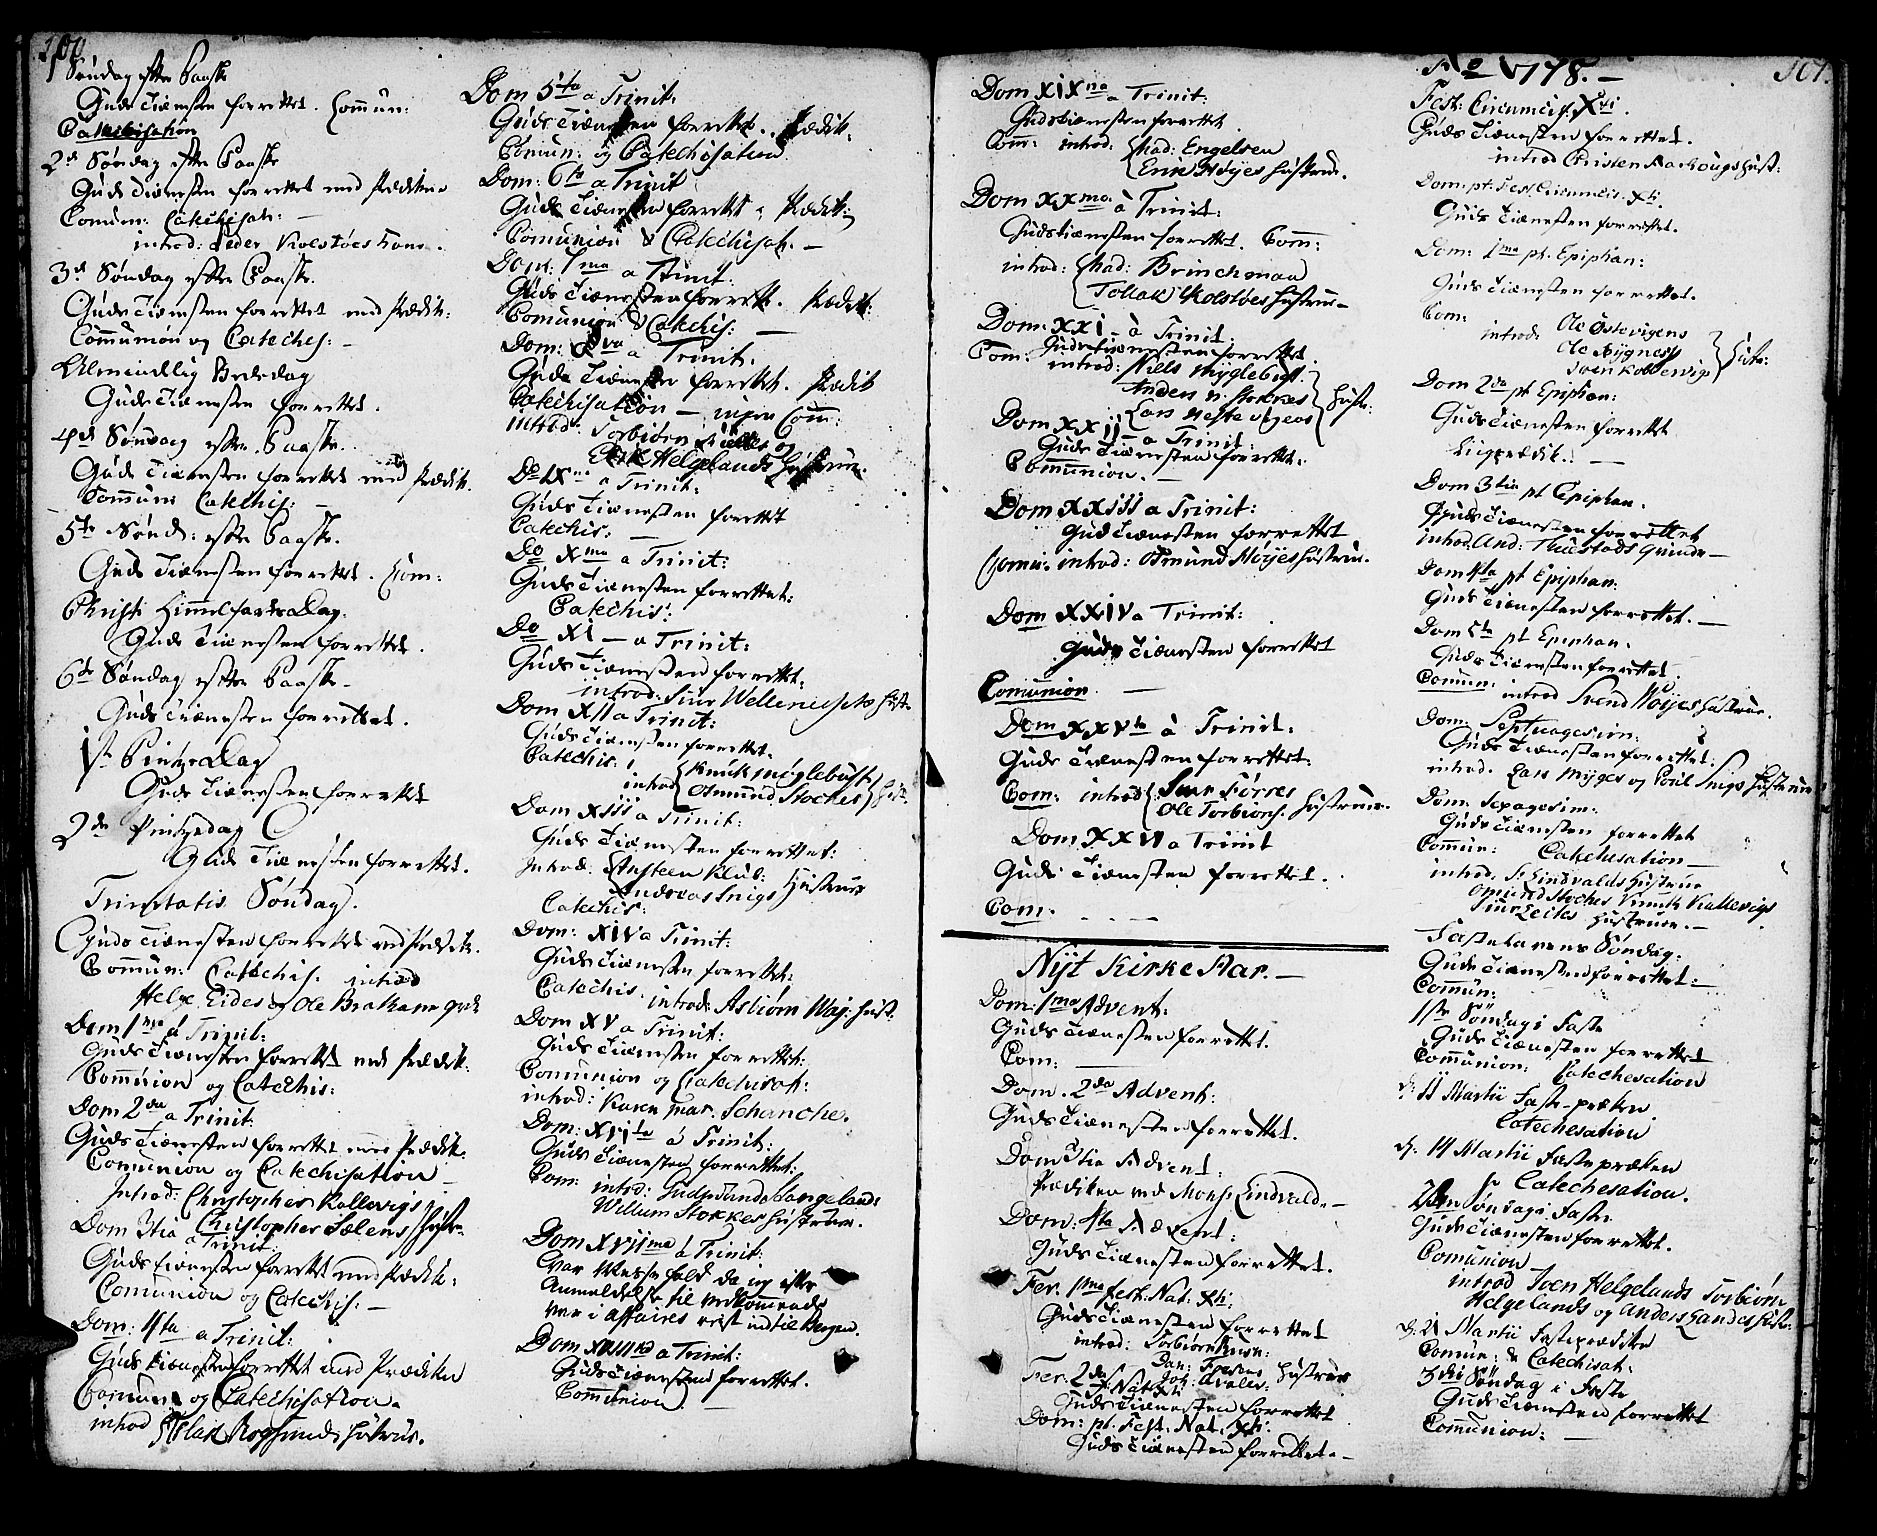 100
1 Søndag efter Paaske
Guds Tienesten forrettet. Commun:
Catechisation
2d Søndag efter Paaske
Guds Tienesten forrettet med Prædiken
Comun: Catechisat: —
introd: Peder Kolstøes Kone.
3d Søndag efter Paaske.
Guds Tienesten forrettet med Prædik:
Communion og Cateches: —
Almindelig Bededag
Guds Tienesten forrettet.
4de Søndag efter Paaske.
Guds Tienesten forrettet med Prædik.
Commun: Catechis: —
5te Sønd: efter Paaske.
Guds Tienesten forrettet. Com:
Christi Himmelfarts Dag.
Guds Tienesten forrettet.
6te Søndag efter Paaske —
Guds Tienesten forrettet.
1st Pintze Dag
Guds Tienesten forrettet
2de Pintzedag
Guds Tienesten forrettet.
Trinitatis Søndag.
Guds Tienesten forrettet med Prædik.
Commun: Catechis: introd
Helge Eides og Ole Bratkane
Dom 1ma à Trinit:
Guds Tienesten forrettet med Prædik:
Communion og Catechis:
Dom 2da a Trinit
Guds Tienesten forrettet med Prædik:
Comunion og Catechisation —
Introd: Christopher Kallevigs
Christopher Sølens Hustr:
Dom 3tia a Trinit:
Guds tienesten forrettet med Prædik:
Comunion og Catechis: —
Dom: 4ta a Trinit:
Guds tienesten forrettet med Prædiken
Comun: og Catechisation.
introd Hustrue.
Dom 5ta a Trinit:
Guds Tienesten forrettet. Prædik:
Comun: og Catechisation.
Dom: 6ta a Trinit
Guds Tienesten forrettet. Prædik:
Comunion & Catechisat. —
Dom: 7ma a Trinit.
Guds Tienesten forrett. Prædik:
Comunion & Catechis: —
Dom: 8va a Trinit.
Guds Tienesten forrettet. Prædik
Catechisation — ingen Com:
introd: Torbiörn og
Erik Helgelands Hustruer.
Do IXna a Trinit:
Guds Tienesten forrettet
Catechis: —
Do Xma a Trinit:
Guds Tienesten forrettet:
Catechis:
Do XI — a Trinit:
Guds Tienesten forrettet.
introd: Siur Hust.
Dom XII a Trinit:
Guds Tienesten forrettet.
Catechis:
introd Knut Møglebust
Osmund Stoches Hust.
Dom XIII a Trinit:
Guds Tienesten forrettet:
Introd: Austeen Klub:
Andreas Snigs Hustruer
Catechis:
Dom: XIV a Trinit:
Guds Tienesten forrettet:
Catechis. introd: Asbiörn Waj: Hust:
Dom XV a Trinit:
Guds Tienesten forrettet:
Comunion og Catechisat:
introd: Karen Mar. Schanche.
Dom: XVIta á Trinit:
Guds Tienesten forrettet:
Com: introd: Gudmund Langelands
Willum Stokkes Hustruer.
Dom XVIIma á Trinit:
var Messefald da jeg efter
Anmeldelse til vedkommende
var i affaires reist ind til Bergen.
Dom XVIII a Trinit:
Guds Tienesten forrettet.
Communion. —
Dom XIXna a Trinit:
Gudstienesten forrettet
Com: introd: Mad: Engelsen
Erik Höijes Hustrue.
Dom XXma. à Trinit:
Gudstienesten forrettet. Com:
introd: Mad: Brinchman
Tollak Kolstøes Hustrue —
Dom: XXI — à Trinit
Gudstienesten forrettet.
Com: introd: Nills Myglebust:
Anders
Lars Hustr:
Dom XXII — a Trinit:
Guds Tienesten forrettet.
Communion. —
Dom XXIII a Trinit:
Guds Tienesten forrettet
Comu: introd: Osmund Höijes Hustrue.
Dom XXIV a Trinit:
Guds Tienesten forrettet
Comunion —
Dom XXVta à Trinit.
Guds Tienesten forrettet:
Com: introd: Siur Førres
Ole Torbiørns: Hustruer.
Dom XXVI a Trinit
Guds Tienesten forrettet.
Com:
Nÿt Kirke Aar. —
Dom: 1ma Advent.
Guds Tienesten forrettet.
Com: —
Dom. 2da Advent:
Guds Tienesten forrettet.
Dom 3tia Advent:
Prædiken ved Mons: Lindvald. —
Dom: 4ta Advent:
Guds Tienesten forrettet.
Fer. 1ma fest: Nat: Xti:
Guds Tienesten forrettet
introd: Torbiörn
Hustruer
Fer: 2da F. Nat: Xti
Guds Tienesten forrettet
Dom: pt. Fest. Nat. Xti:
Guds Tienesten forrettet. —
101.
Ao 1778. —
Fest: Circumcis: Xsti.
Guds Tienesten forrettet.
introd Christen Aarhougs Hust:
Dom: pt. Fest Circumcis. Xti.
Guds Tienesten forrettet.
Dom: 1ma pt. Epiphan:
Guds Tienesten forrettet.
Com:
introd: Ole Østevigens
Ole Nygness
Sven Kollervigs Hustr:
Dom 2da pt Epiphan:
Guds Tienesten forrettet
Ligprædik: —
Dom 3tia pt Epiphan.
Guds Tienesten forrettet
introd. And: Thuestads Qvinde —
Dom 4ta pt Epiphan:
Guds Tienesten forrettet. —
Dom 5ta pt Epiphan.
Guds Tienesten forrettet.
Comun: introd Svend Höijes Hustrue.
Dom: Septuagesim:
Guds Tienesten forrettet:
introd. Lars Mÿges og Poul Snigs Hustruer
Dom: Sexagesim:
Guds Tienesten forrettet
Commun: Catechisation —
introd. Schindvalds Hustrue
Osmund Stoches Knuk Kallevigs
Siur Leites Hustruer. —
Fastelavens Søndag:
Guds Tienesten forrettet: —
Commun:
1ste Søndag i Faste
Guds Tienesten forrettet
Communion: Catechesation
d: 11 Martii Faste-præken
Catechesation
d: 14 Martii Fastepræken
Catechesation.
2den Søndag i Faste
Guds Tienesten forrettet.
Comunion
introd Iven Helgelands Torbiörn
Helgelands og Anders Sandes Hustr:
d: 21 Martii Fasteprædiken
Comun: & Catechisat.
3die Søndag i Faste
Guds Tienesten forrettet
Communion: —